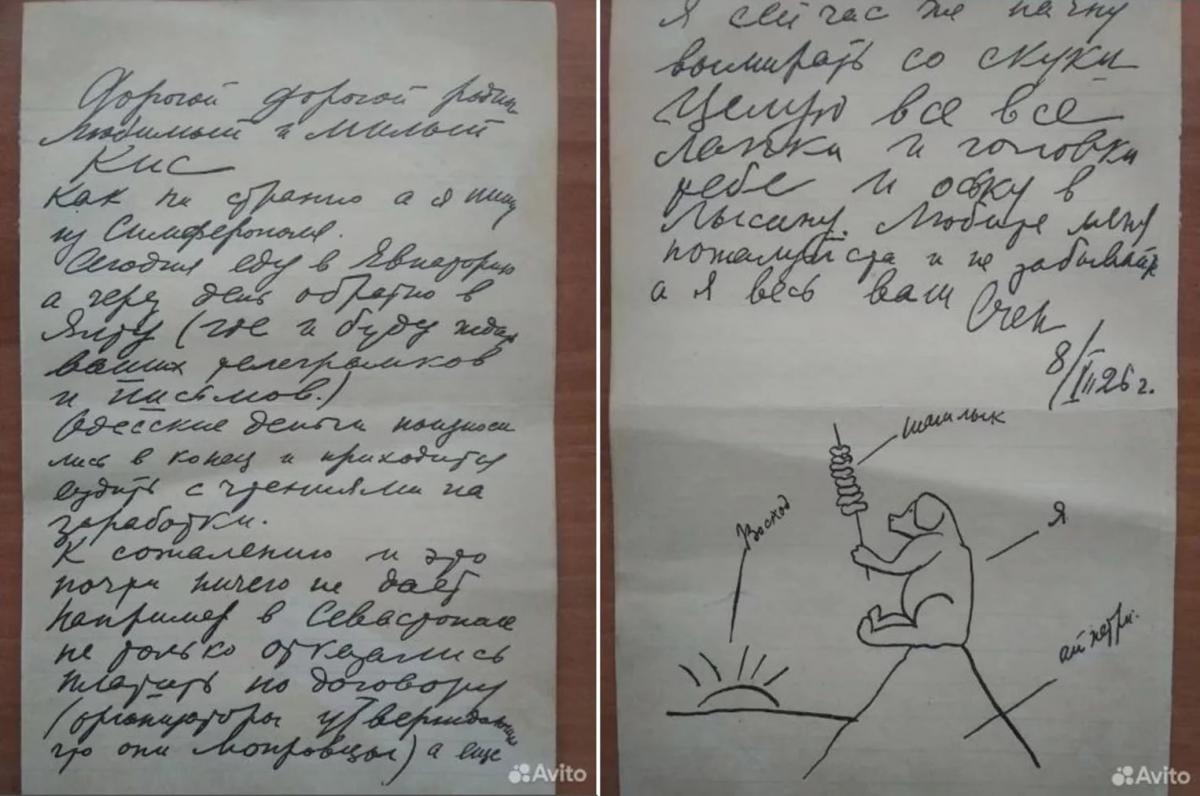 Дорогой дорогой родный
любимый и милый
Кис
как ни странно а я пишу
из Симферополя.
Сегодня еду в Явпаторию
а через день обратно в
Ялту (где и буду ждать
ваших телеграмков
и письмов.)
Одесские деньги поизноси
лись в конец и приходится
ездить с чтениями на
заработки.
К сожалению и это
почти ничего не дает
Например в Севастополе
не только отказались
платить по договору
(организаторы утверждающие
что они Мопровцы) а еще
Avito
Я сейчас же начну
вымирать со скуки
Целую все все
лапки и головки
тебе и оську в
лысину. Любите меня
пожалуйста и не забывайте
а я весь ваш
Счен
8/VII 26 г.
шашлык
Восход
Я
ай петри.
Avito